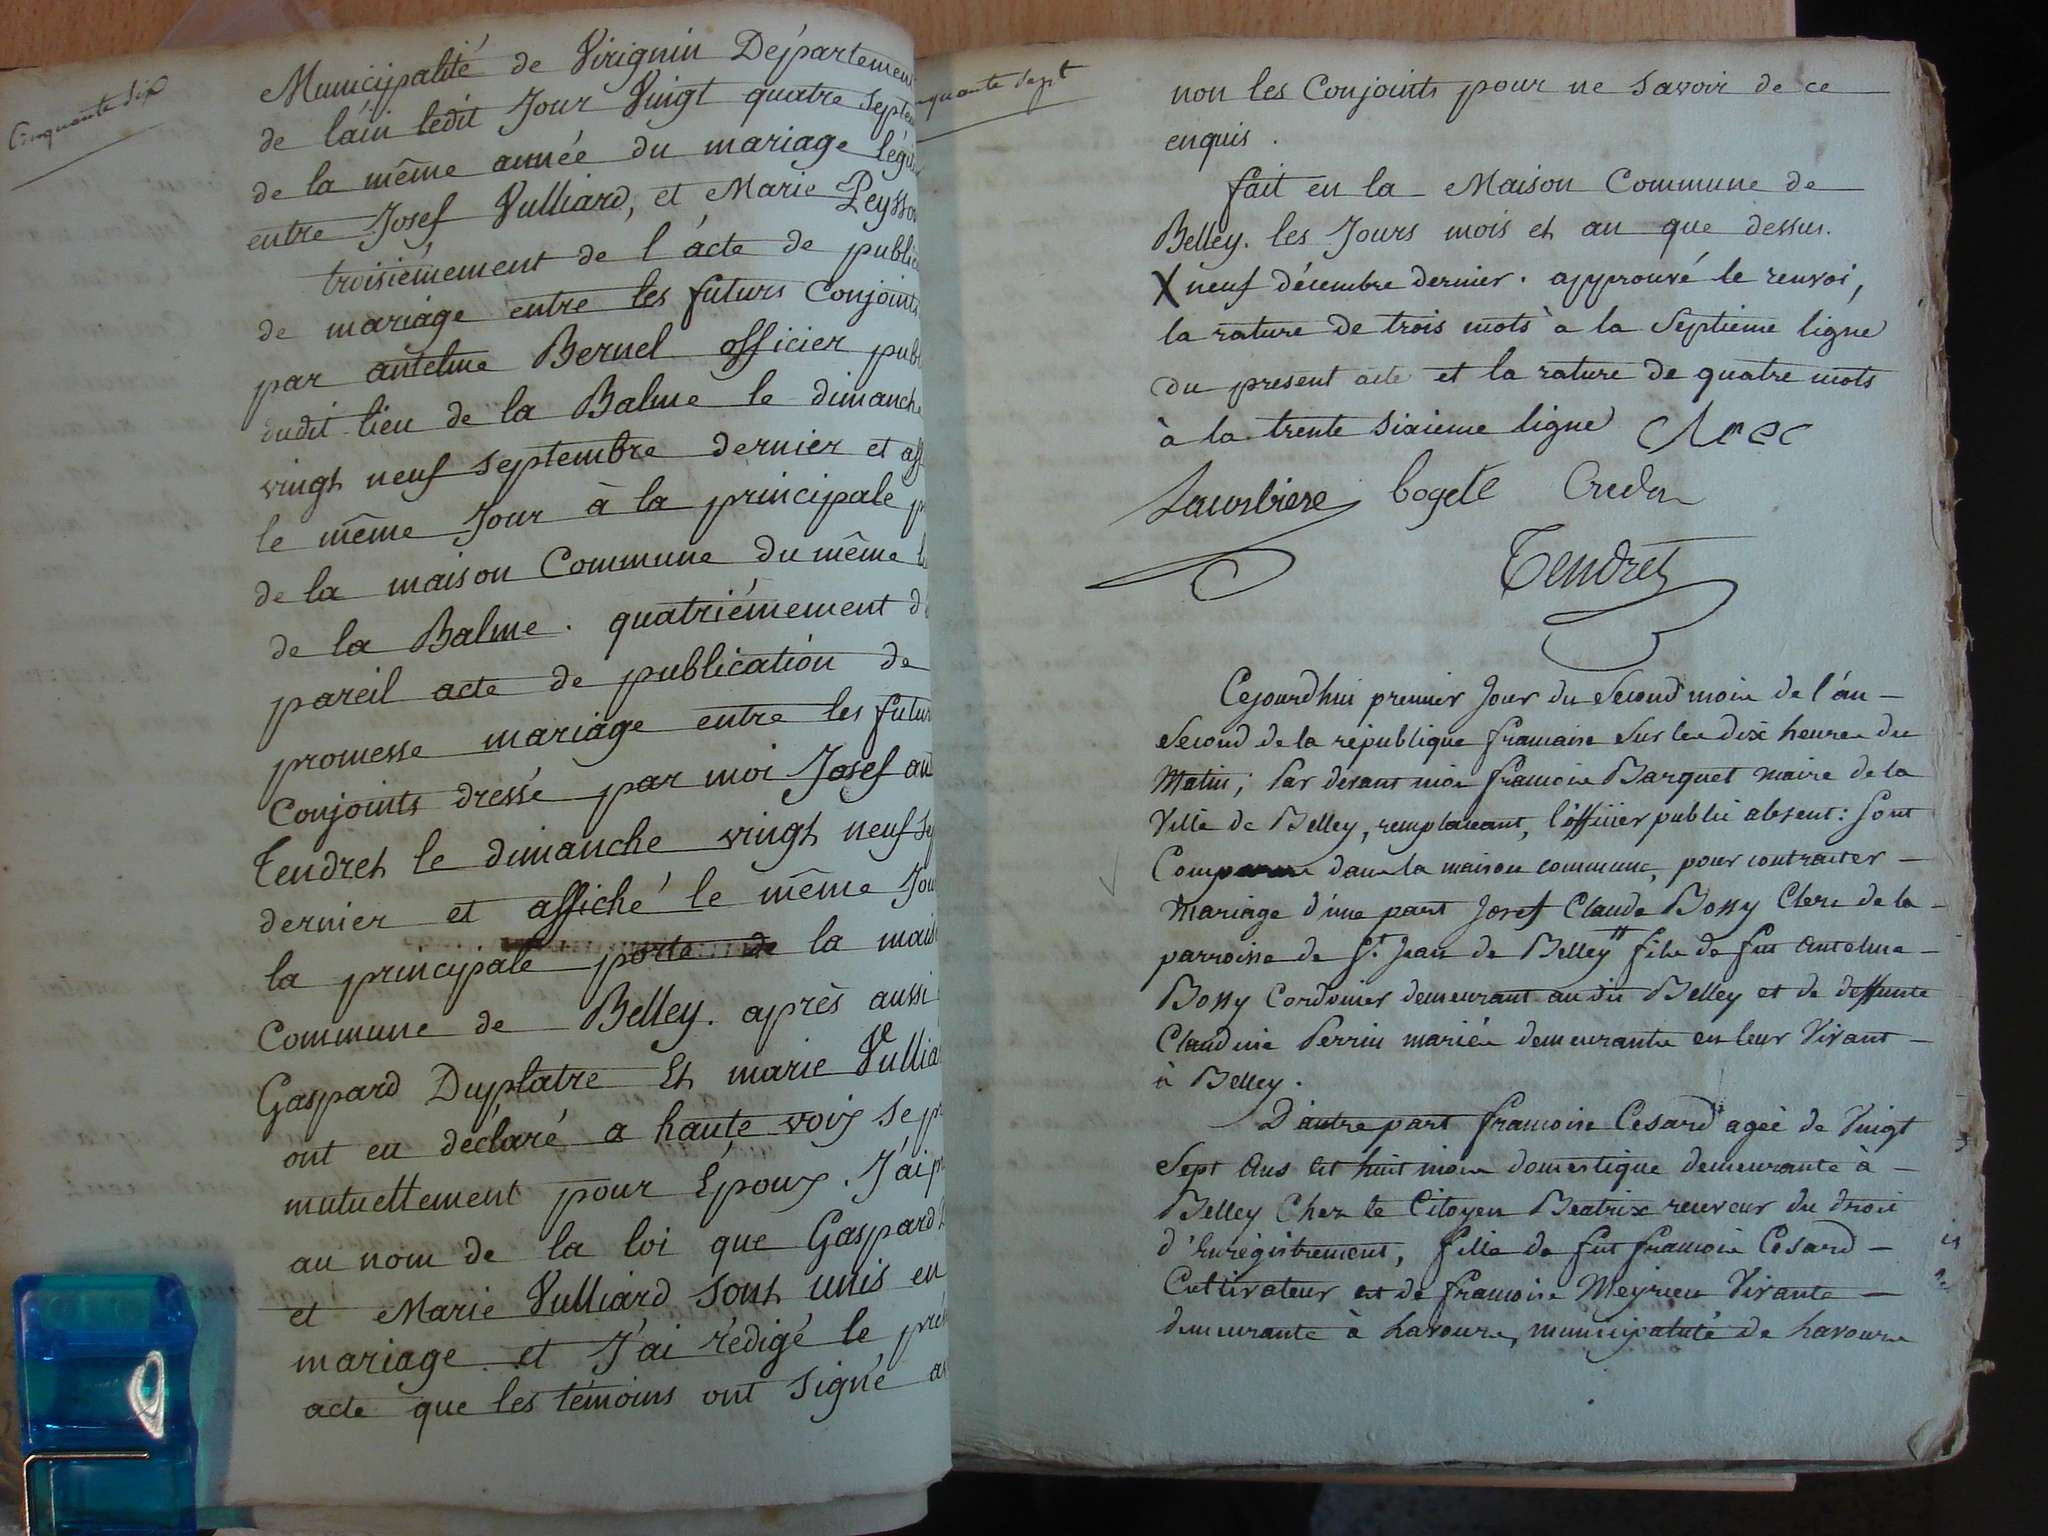 Cinquante six
Municipalité de Virignin Département
de láin ledit Jour Vingt quatre septem
de la même année du mariage légi
entre Josef Vulliard, et Marie Peysson
troisiémement de l'acte de public
de mariage entre les futurs Conjoints
par antelme Bernel officier publ
dudit lieu de la Balme le dimanche
vingt neuf septembre dernier et aff
le même Jour à la principale p
de la maison Commune du même l
de la Balme. quatriémement d
pareil acte de publication de
promesse mariage entre les futur
Conjoints dressé par moi Josef an
Tendret le dimanche vingt neuf Se
dernier et affiché le même Jou
la principale porte de la mais
Commune de Belley. après aussi
Gaspard Duplatre Et marie Vullia
ont eu déclaré a haute voix se p
mutuellement pour Époux. J'ai p
au nom de la loi que Gaspard
et Marie Vulliard sont unis en
mariage. et J'ai rédigé le pré
acte que les témoins ont signé a
quante sept
non les Conjoints pour ne savoir de ce
enquis.
fait en la Maison Commune de
Belley. les Jours mois et an que dessus.
X neuf décembre dernier. approuvé le renvoi,
la rature de trois mots à la septieme ligne
du present acte et la rature de quatre mots
à la trente sixieme ligne
bogete
Tendret
Cejourdhui premier Jour du Second mois de l'an
Second de la république francaise sur les dix heures du
Matin; Par devant moi francois Barquet maire de la
Ville de Belley, remplaceant, l'officier public absent: Sont
Comparus dans la maison commune, pour contracter
Mariage d'une part Josef Claude Bossy Clerc de la
parroisse de St Jean de Belley fils de fut Antelme
Bossy Cordonier demeurant au dit Belley et de deffunte
Claudine Perrin mariés demeurants en leur Vivant
à Belley.
D'autre part francoise Cesard agée de Vingt
Sept Ans et huit mois domestique demeurante à
Belley Chez le Citoyen Beatrix receveur du droit
d'Enregistrement, fille de fut francois Cesard
Cultivateur et de francoise Meyrieu Vivante
demeurante à Lavours, municipalité de Lavours